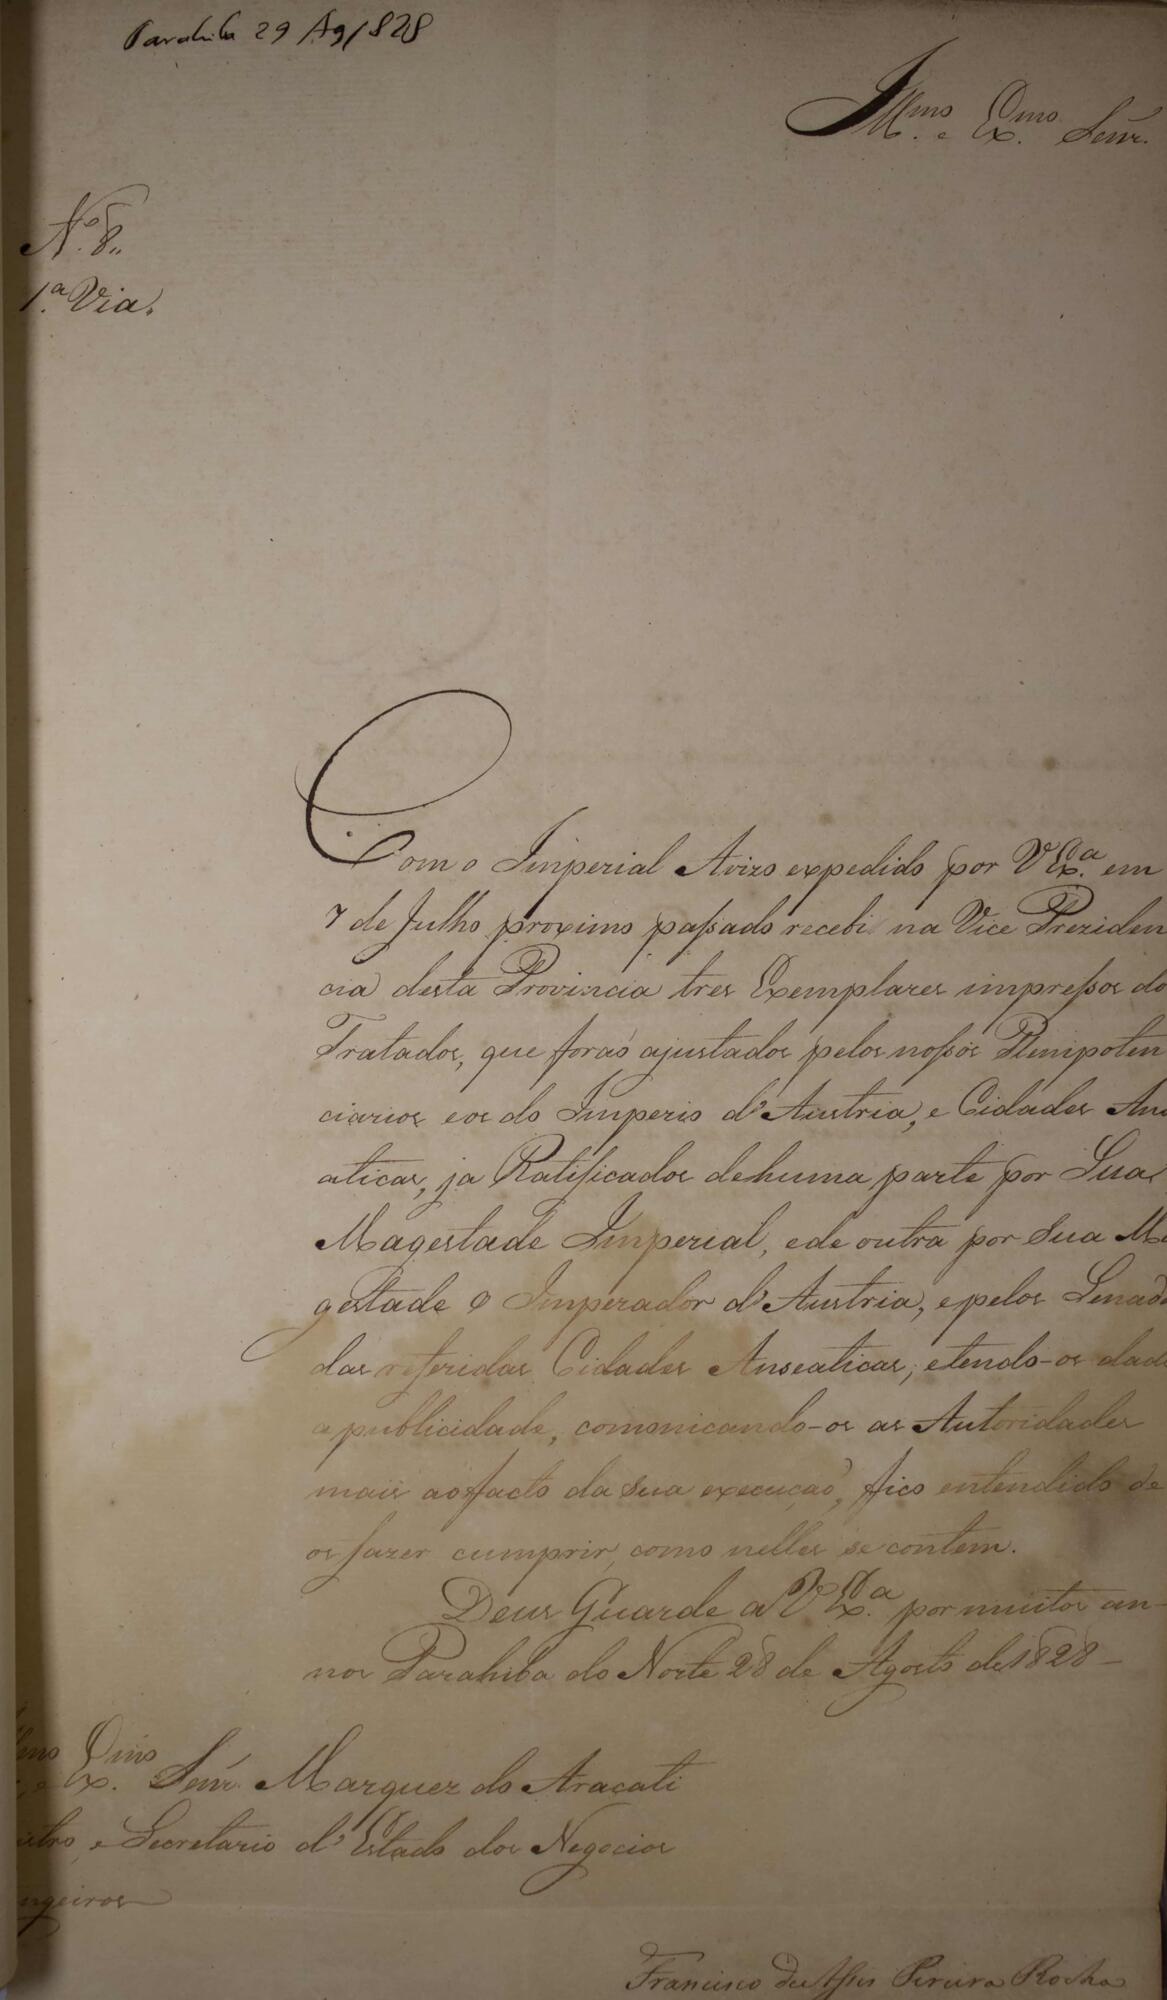 Parahiba 29 Ag/828
Ill.mo e Ex.mo Senr.
N.o 8..
1.a Via.
Com o Imperial Avizo expedido por V Ex.a em
7 de Julho proximo passado recebi na Vice Preziden
cia desta Provincia tres Exemplares impressos do
Tratados, que foraõ ajustados pelos nossos Plenipoten
ciarios e os do Imperio d'Austria, e Cidades Ans
aticas, ja Ratificados de huma parte por Sua
Magestade Imperial, e de outra por Sua Ma
gestade o Imperador d'Austria, e pelos Senado
das referidas Cidades Anseaticas; e tendo-os dado
a publicidade, comonicando-os as Autoridades
mais ao facto da sua execuçaõ, fico entendido de
os fazer cumprir, como nelles se contem.
Deus Guarde a V Ex.a por muitos an-
nos Parahiba do Norte 28 de Agosto de 1828-
mo e Ex.mo Senr. Marquez do Aracati
istro, e Secretario d'Estado dos Negocios
ngeiros
Francisco de Assis Pereira Rocha